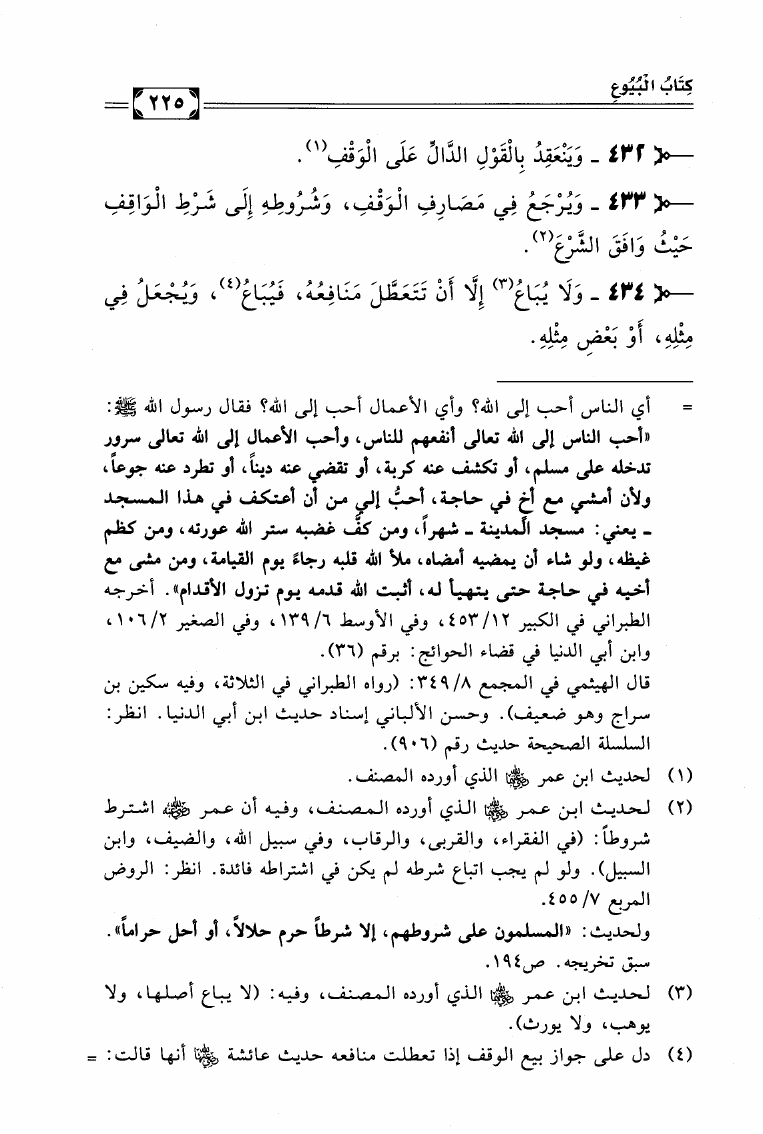 كِتَابُ الْبُيُوعِ
٢٢٥
٤٣٢ ـ وَيَنْعَقِدُ بِالْقَوْلِ الدَّالِّ عَلَى الْوَقْفِ(١).
٤٣٣ ـ وَيُرْجَعُ فِي مَصَارِفِ الْوَقْفِ، وَشُرُوطِهِ إِلَى شَرْطِ الْوَاقِفِ
حَيْثُ وَافَقَ الشَّرْعَ(٢).
٤٣٤ ـ وَلَا يُبَاعُ(٣) إِلَّا أَنْ تَتَعَطَّلَ مَنَافِعُهُ، فَيُبَاعُ(٤)، وَيُجْعَلُ فِي
مِثْلِهِ، أَوْ بَعْضِ مِثْلِهِ.
= أي الناس أحب إلى الله؟ وأي الأعمال أحب إلى الله؟ فقال رسول الله ﷺ:
«أحب الناس إلى الله تعالى أنفعهم للناس، وأحب الأعمال إلى الله تعالى سرور
تدخله على مسلم، أو تكشف عنه كربة، أو تقضي عنه ديناً، أو تطرد عنه جوعاً،
ولأن أمشي مع أخٍ في حاجة، أحبُّ إلي من أن أعتكف في هذا المسجد
ـ يعني: مسجد المدينة ـ شهراً، ومن كفَّ غضبه ستر الله عورته، ومن كظم
غيظه، ولو شاء أن يمضيه أمضاه، ملأ الله قلبه رجاءً يوم القيامة، ومن مشى مع
أخيه في حاجة حتى يتهيأ له، أثبت الله قدمه يوم تزول الأقدام». أخرجه
الطبراني في الكبير ٤٥٣/١٢، وفي الأوسط ١٣٩/٦، وفي الصغير ١٠٦/٢،
وابن أبي الدنيا في قضاء الحوائج: برقم (٣٦).
قال الهيثمي في المجمع ٣٤٩/٨: (رواه الطبراني في الثلاثة، وفيه سكين بن
سراج وهو ضعيف). وحسن الألباني إسناد حديث ابن أبي الدنيا. انظر:
السلسلة الصحيحة حديث رقم (٩٠٦).
(١) لحديث ابن عمر رضي الله عنهما الذي أورده المصنف.
(٢) لحديث ابن عمر رضي الله عنهما الذي أورده المصنف، وفيه أن عمر رضي الله عنه اشترط
شروطاً: (في الفقراء، والقربى، والرقاب، وفي سبيل الله، والضيف، وابن
السبيل). ولو لم يجب اتباع شرطه لم يكن في اشتراطه فائدة. انظر: الروض
المربع ٤٥٥/٧.
ولحديث: «المسلمون على شروطهم، إلا شرطاً حرم حلالاً، أو أحل حراماً».
سبق تخريجه. ص١٩٤.
(٣) لحديث ابن عمر رضي الله عنهما الذي أورده المصنف، وفيه: (لا يباع أصلها، ولا
يوهب، ولا يورث).
(٤) دل على جواز بيع الوقف إذا تعطلت منافعه حديث عائشة رضي الله عنها أنها قالت: =